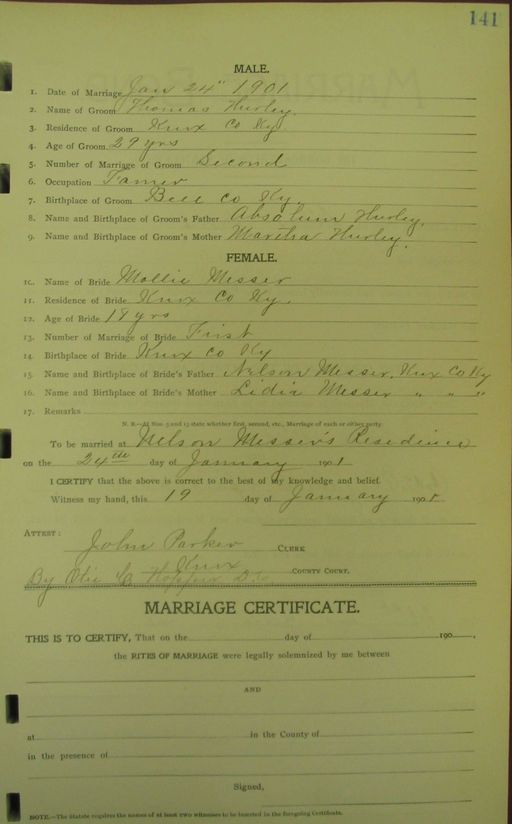 141
MALE.
1. Date of Marriage Jan 24" 1901
2. Name of Groom Thomas Hurley.
3. Residence of Groom Knox Co Ky.
4. Age of Groom 29 yrs
5. Number of Marriage of Groom Second
6. Occupation Famer
7. Birthplace of Groom Bell Co Ky.
8. Name and Birthplace of Groom's Father Absolum Hurley.
9. Name and Birthplace of Groom's Mother Martha Hurley.
FEMALE.
10. Name of Bride Mollie Messer
11. Residence of Bride Knox Co Ky.
12. Age of Bride 18 yrs
13. Number of Marriage of Bride First
14. Birthplace of Bride Knox Co Ky
15. Name and Birthplace of Bride's Father Nelson Messer. Knox Co Ky
16. Name and Birthplace of Bride's Mother Lidia Messer " " "
17. Remarks
N. B.—At Nos. 5 and 13 state whether first, second, etc., Marriage of each or either party.
To be married at Nelson Messer's Residence
on the 24th day of January 1901
I CERTIFY that the above is correct to the best of my knowledge and belief.
Witness my hand, this 19 day of January 190
ATTEST:
John Parker CLERK
Knox COUNTY COURT.
By Otis C. D.C.
MARRIAGE CERTIFICATE.
THIS IS TO CERTIFY, That on the day of 190 ,
the RITES OF MARRIAGE were legally solemnized by me between
AND
at in the County of
in the presence of
Signed,
NOTE.—The Statute requires the names of at least two witnesses to be inserted in the foregoing Certificate.